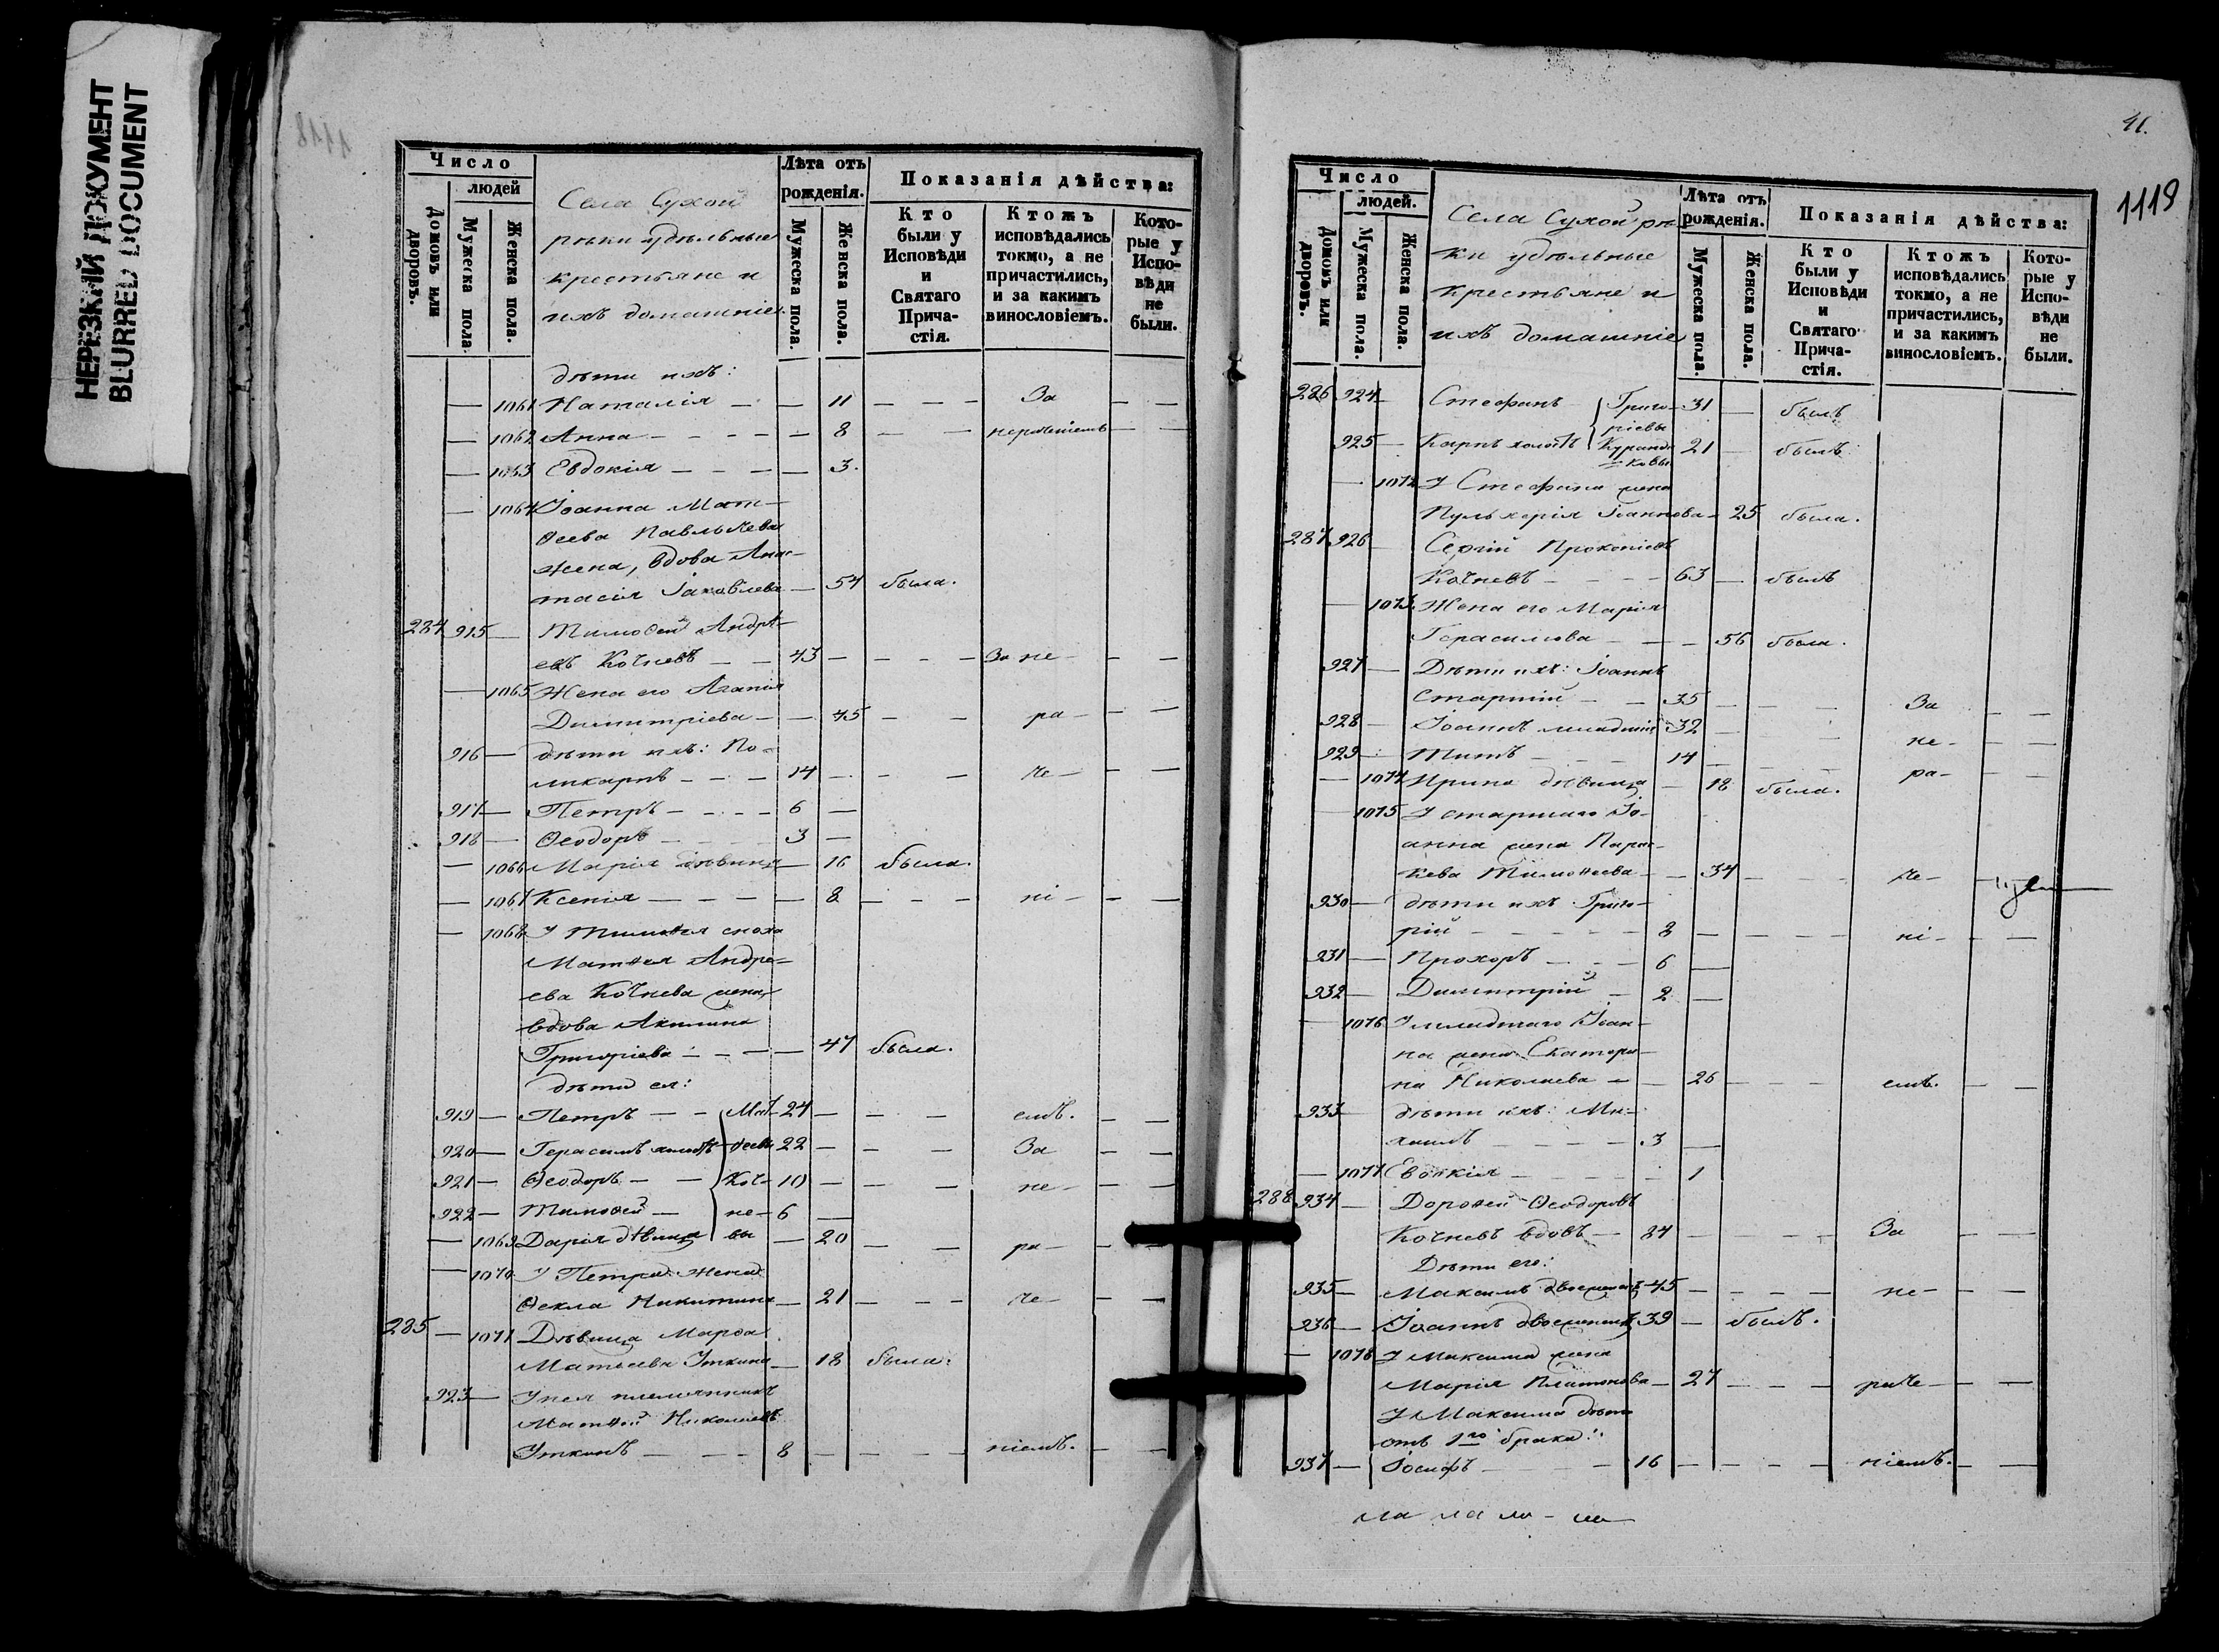 НЕРЕЗКИЙ ДОКУМЕНТ
BLURRED DOCUMENT
1118
Число
людей
Домовъ или дворовъ.
Мужеска пола.
Женска пола.
Села Сухой
рѣки удѣльные
крестьяне и
ихъ домашніе
Лѣта отъ рожденія.
Мужеска пола.
Женска пола.
Показанія дѣйства:
Кто были у Исповѣди и Святаго Причастія.
Ктожъ исповѣдались токмо, а не причастились, и за какимъ винословіемъ.
Которые у Исповѣди не были.
дѣти ихъ:
1061 Наталія — — 11 — — — За — —
1062 Анна — — — — — 8 — — нераченіемъ — —
1063 Евдокія — — — — 3.
1064 Іоанна Мат-
ѳеева Павлычева
жена, вдова Анас-
тасія Іаковлева — 54 была.
284 915 — Тимоѳей Андрѣ-
евъ Кочневъ — — 43 — — — — За не- — —
1065 Жена его Агапія
Димитріева — — 45 — — ра- — —
916 — дѣти ихъ: По-
ликарпъ — — — 14 — — — че- — —
917 — Петръ — — — — 6 —
918 — Ѳеодоръ — — — 3 —
1066 Марія дѣвица — 16 была.
1067 Ксенія — — — — 8 — — — ні- — —
1068 У Тимоѳея сноха
Матѳея Андре-
ева Кочнева жена,
вдова Акилина
Григоріева — — — 47 была.
дѣти ея:
919 — Петръ — — Мат- 24 — — — емъ. — —
920 — Герасимъ холостъ ѳеевы 22 — — — За — —
921 — Ѳеодоръ — — Коч- 10 — — — не- — —
922 — Тимоѳей — не- 6 —
1069 Дарія дѣвица вы — 20 — — ра- — —
1070 У Петра жена
Ѳекла Никитина — 21 — — — че- — —
285 — 1071 Дѣвица Марѳа
Матѳеева Уткина — 18 была.
923 — У нея племянникъ
Матѳей Николаевъ
Уткинъ — — — 8 — — — — ніемъ. — —
41.
1119
Число
людей.
Домовъ или дворовъ.
Мужеска пола.
Женска пола.
Села Сухой рѣ-
ки удѣльные
крестьяне и
ихъ домашніе
Лѣта отъ рожденія.
Мужеска пола.
Женска пола.
Показанія дѣйства:
Кто были у Исповѣди и Святаго Причастія.
Ктожъ исповѣдались токмо, а не причастились, и за какимъ винословіемъ.
Которые у Исповѣди не были.
286 924 — Стефанъ Григо- 31 — былъ
ріевы
925 — Карпъ холостъ 21 — былъ
1072 У Стефана жена
Пульхерія Іоаннова — 25 была.
287 926 — Сергій Прокопіевъ
Кочневъ — — — — 63 — былъ
1073 Жена его Марія
Герасимова — — — 56 была.
927 — Дѣти ихъ: Іоаннъ
старшій — — 35 — — — За — —
928 — Іоаннъ младшій 32 — — не- — —
929 — Титъ — — — 14 — — — ра- — —
1074 Ирина дѣвица — 18 была.
1075 У старшаго Іо-
анна жена Парас-
кева Тимоѳеева — — 34 — — — че-
930 — дѣти ихъ: Григо-
рій — — — — — 8 — — — — ні- — —
931 — Прохоръ — — — 6 —
932 — Димитрій — 2 —
1076 У младшаго Іоан-
на жена Екатери-
на Николаева — — 26 — — — емъ. — —
933 — дѣти ихъ: Ми-
хаилъ — — — — 3 —
1077 Евдокія — — — — 1
288 934 — Дороѳей Ѳеодоровъ
Кочневъ вдовъ — 84 — — — — За — —
Дѣти его:
935 — Максимъ двоеженецъ 45 — — — — не- — —
936 — Іоаннъ двоеженецъ 39 — былъ.
1078 У Максима жена
Марія Платонова — 27 — — — раче- — —
У Максима дѣти
отъ 1го брака:
937 — Іосифъ — — — 16 — — — — ніемъ. — —